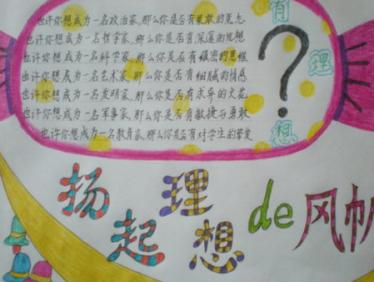 也许你想成为一名政治家,那么你是否有
也许你想成为一名哲学家,那么你是否有深邃的思想
也许你想成为一名科学家,那么你是否有缜密的思维
也许你想成为一名艺术家,那么你是否有细腻的情感
也许你想成为一名发明家,那么你是否有求异的
也许你想成为一名军事家,那么你是否有敏捷与勇敢
也许你想成为一名教育家,那么你是否有对学生的挚爱
有
理
想
?
扬起理想de风帆